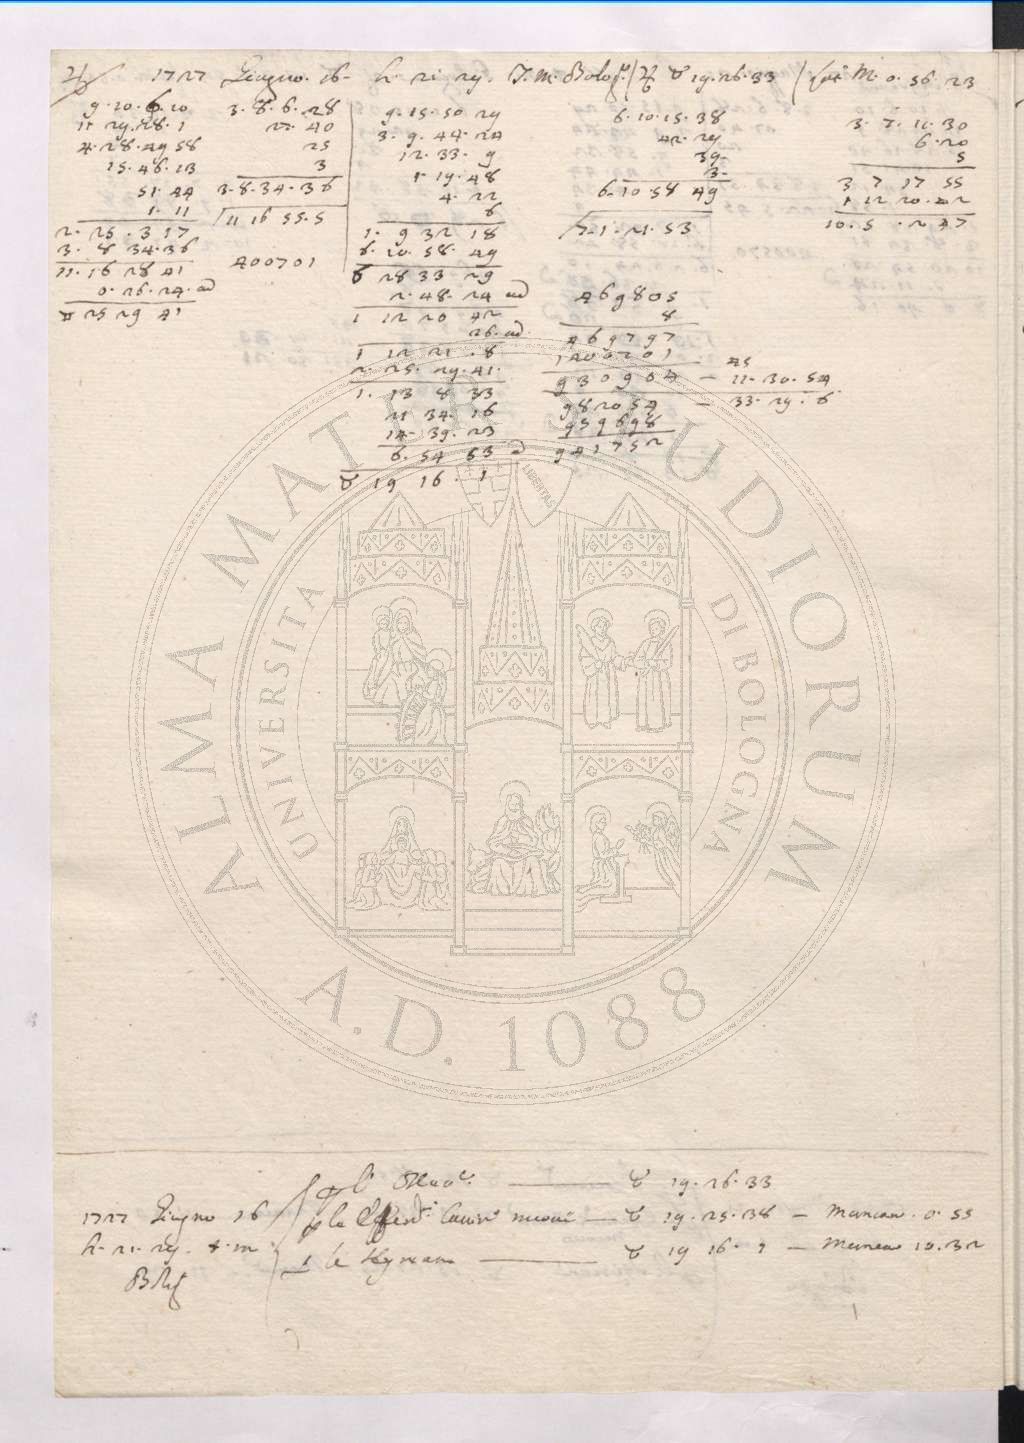 ♃ 1727 Giugno. 16. h. 21 29. T. M. Bolog.ᵃ / ♃ ♉ 19. 26. 33 / Lat. M. 0. 56. 23
9. 20. 6. 20
11. 29. 28. 1
4. 28. 49 58
15. 46. 13
51. 44
1. 11
2. 25. 3 17
3. 8 34. 36
11. 16 28 41
0. 26. 24. ad
♊ 25 29 41
3. 8. 6. 28
27. 40
25
3
3. 8. 34. 36
11 16 55. 5
400701
9. 15. 50 29
3. 9. 44. 24
12. 33. 9
1. 19. 48
4. 22
6
1. 9 32 18
6. 20. 58. 49
6 28 33 29
2. 48. 24 ad
1 12 20 42
26. ad
1 12 21. 8
2. 25. 29. 41.
1. 13 8 33
11 34. 16
14. 39. 23
6. 54 53
♉ 19 16. 1
6. 10. 15. 38
42. 29
39.
3.
6. 10 58 49
7. 1. 21. 53
469805
8
469797
1400701 45
930904 — 11. 30. 54
982054 — 33. 29. 6
959698
941752
3. 7. 11. 30
6. 20
5
3 7 17 55
1 12 20. 42
10. 5. 2 47
ALMA MATER STUDIORUM
UNIVERSITA DI BOLOGNA
LIBERTAS
A.D. 1088
1727 Giugno 16
h. 21. 29. t. m.
Bolog.
p l' Osser.ᵉ — ♉ 19. 26. 33
p le Effem.ⁱ Cassin.ᵉ nuove — ♉ 19. 25. 38 — Mancan. 0. 55
p le — ♉ 19 16. 1 — Manca 10. 32